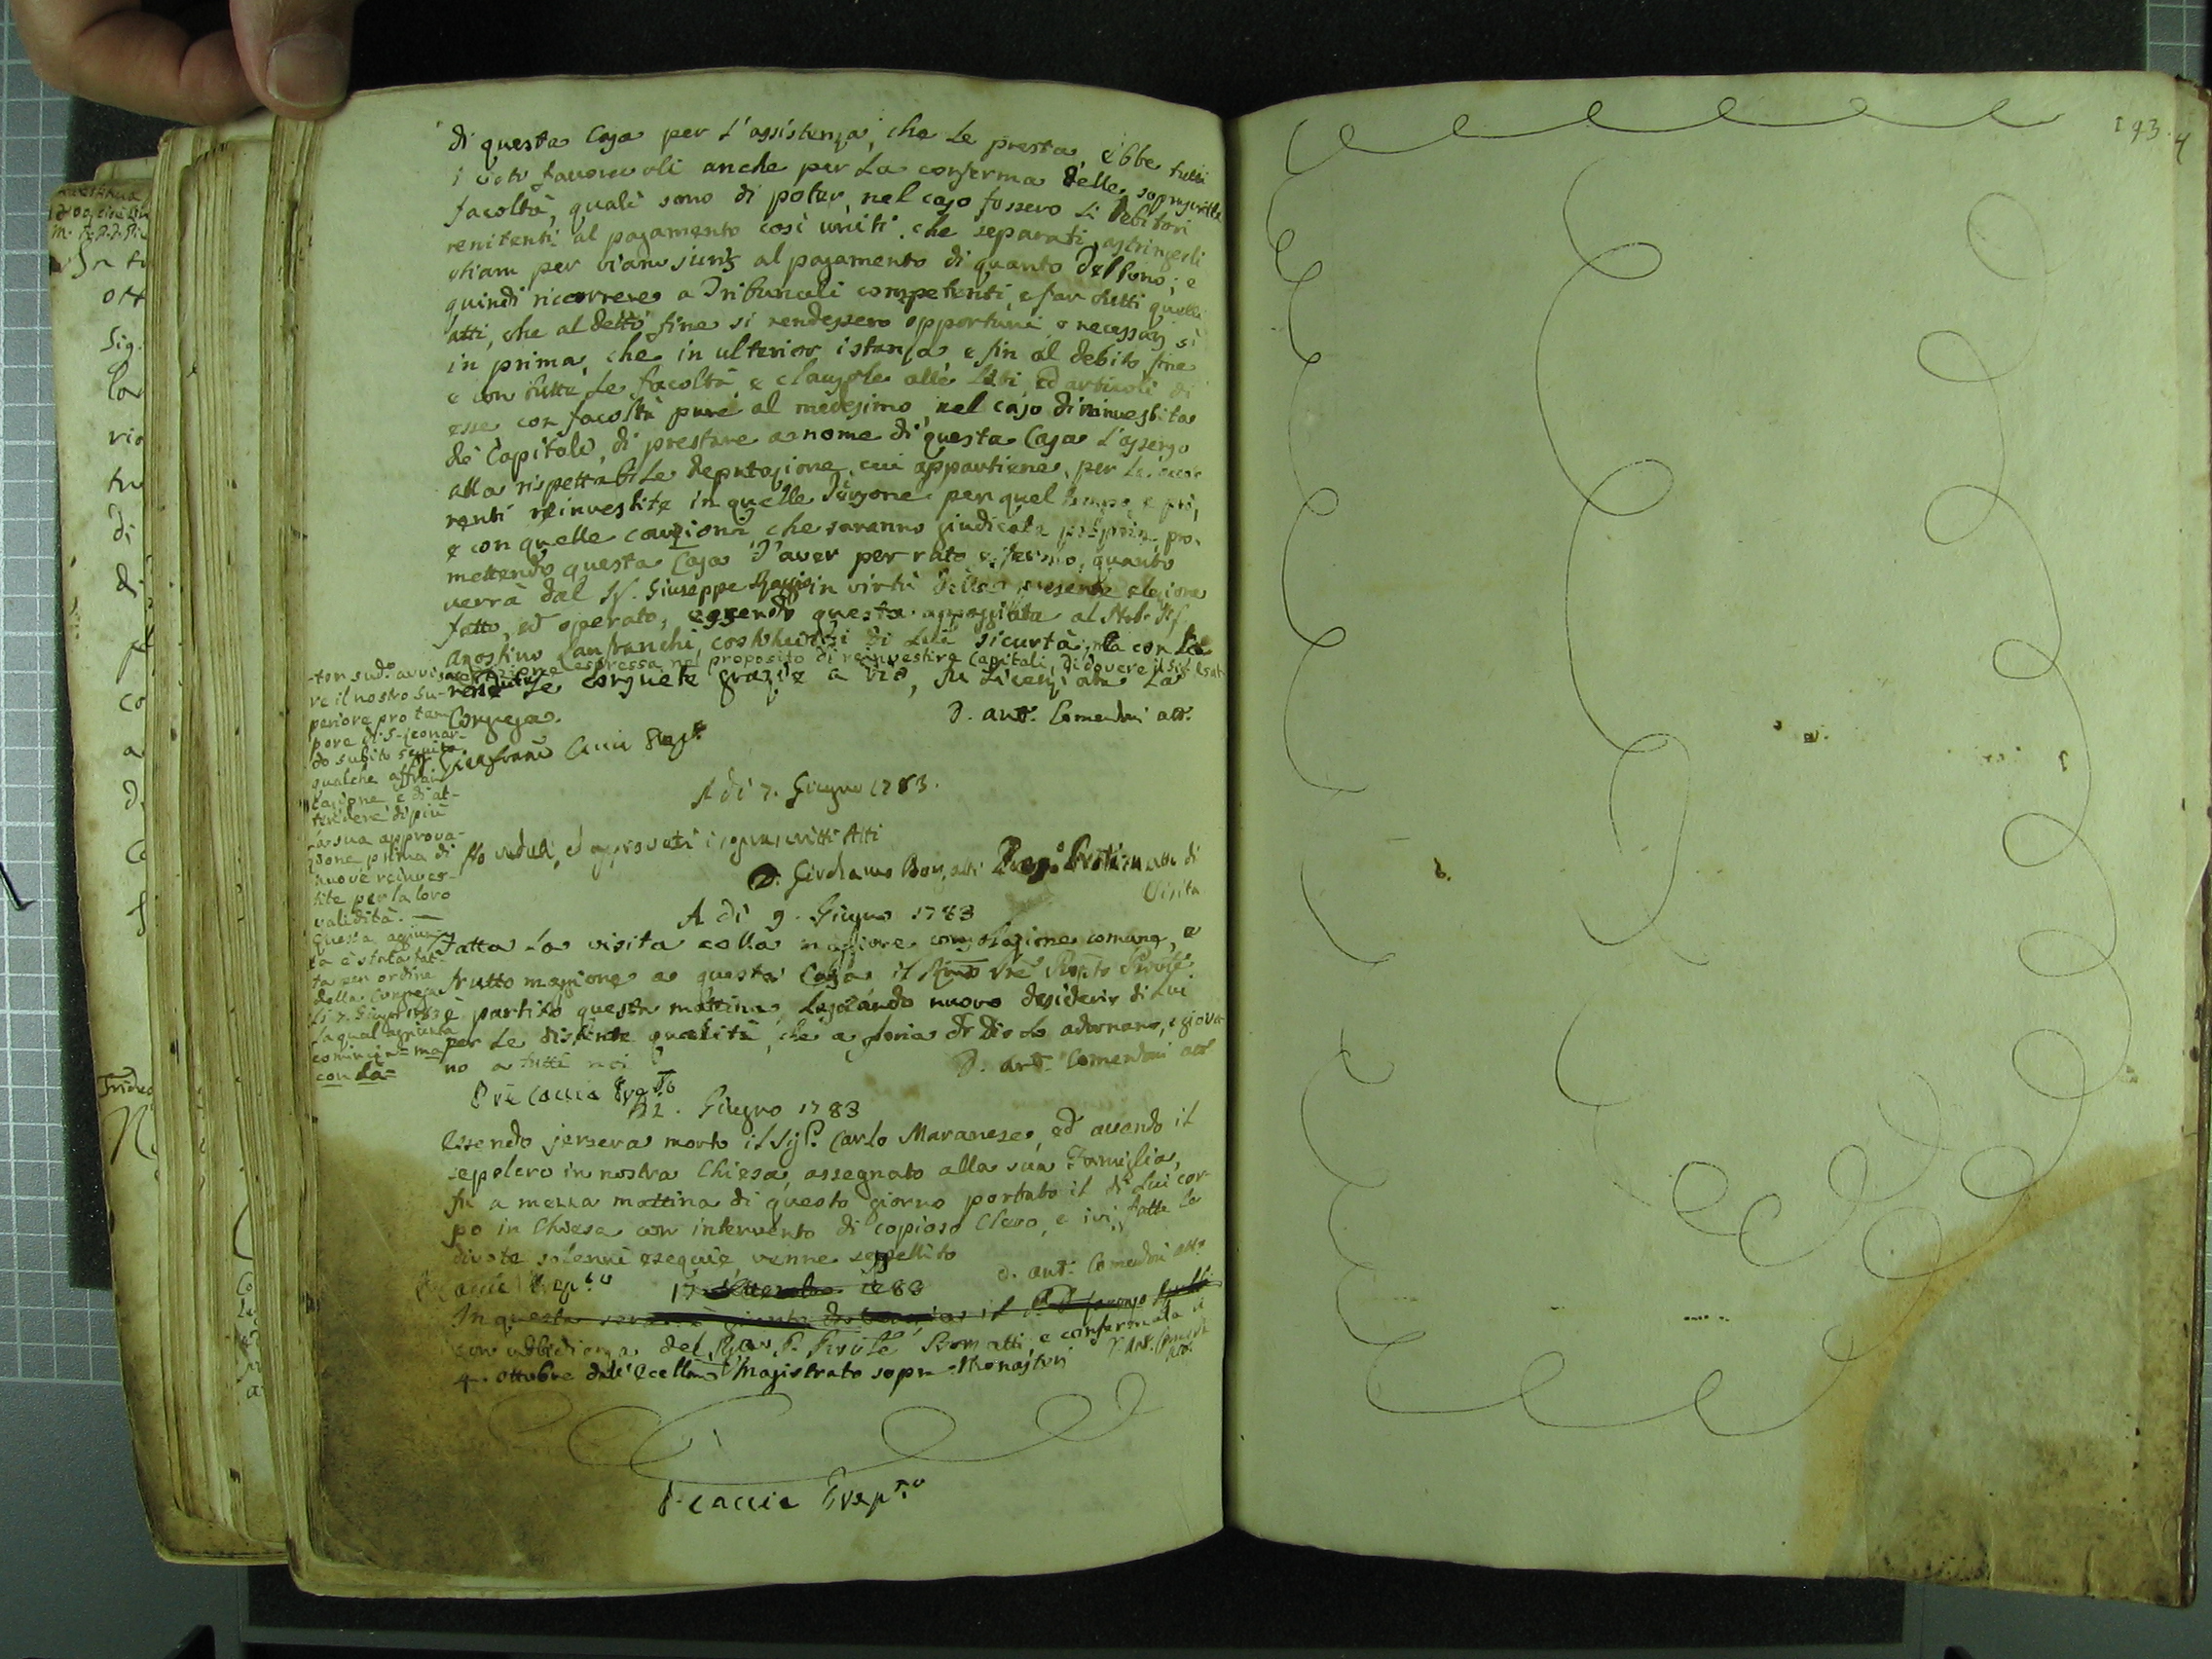 di questa Casa per l'assistenza, che le presta, ebbe tutti
i voti favorevoli anche per la conferma delle soprascritte
facoltà, quali sono di poter, nel caso fossero li Debitori
renitenti al pagamento così uniti, che separati, astringerli
etiam per viam juris al pagamento di quanto debbono; e
quindi ricorrere a Tribunali competenti, e far tutti quelli
atti, che al detto fine si rendessero opportuni e necessarj sì
in prima, che in ulterior istanza e fin al debito fine
e con tutte le facoltà e clausole alle Liti, ed articoli di
esse con facoltà pure al medesimo, nel caso di reinvestita
de' Capitali, di prestare a nome di questa Casa l'assenso
alla rispettabile deputazione, cui appartiene, per le
renti reinvestite in quelle Persone per quel tempo, e prò,
e con quelle cauzioni che saranno giudicate proprie, pro-
mettendo questa Casa d'aver per rato e fermo, quanto
verrà dal Sig. Giuseppe in virtù della presente elezione
fatto, ed operato, essendo questa appoggiata al Nob. Sig.
Agostino Lanfranchi, costituitosi di lui sicurtà, ma con la
condizione espressa nel proposito di reinvestire Capitali, di dovere il Sig. Esat-
rendute le consuete grazie a Dio, fu licenziata la
Congrega.
D. Ant. Comendoni att.
Gianfranc. Caccia Prep.to
-tor sud.o avvisa-
re il nostro Su-
periore pro tem-
pore di S. Leonar-
do subito seguita
qualche affran-
cazione, e di at-
tendere di più
la sua approva-
zione prima di
nuove reinves-
tite per la loro
validità. —
Questa agiun-
ta è stata fat-
ta per ordine
della Congrega
li 7. Giugno 1783
la qual agiunta
comincia = ma
con la =
A dì 7. Giugno 1783.
Ho veduti, ed approvati i soprascritti Atti
D. Girolamo Bonzatti Prep.o Prov.le in atto di
Visita
A dì 9. Giugno 1783
Fatta la visita colla maggiore consolazione comune, e
frutto maggiore a questa Casa il R.mo Pre Prep.to Prov.le
è partito questa mattina, lasciando nuovo desiderio di lui
per le distinte qualità, che a gloria di Dio lo adornano, e giova-
no a tutti noi
D. Ant. Comendoni att.
P. Caccia Prep.to
12. Giugno 1783
Essendo jersera morto il Sig.r Carlo Maranese, ed avendo il
sepolcro in nostra Chiesa, assegnato alla sua Famiglia,
fu a mezza mattina di questo giorno portato il di lui cor-
po in Chiesa con intervento di copioso Clero, e ivi fatte le
divote solenni esequie venne seppellito
D. Ant. Comendoni att.o
P. Caccia Prep.to
17 Settembre 1783
In questa sera è giunto da il P. D.
con ubbidienza del R.mo P. Prov.le Bonzatti, e confermata li
4. Ottobre dall'Eccell.mo Magistrato sopra Monasterj
D. Ant. Comendoni
att.
P. Caccia Prep.to
193.